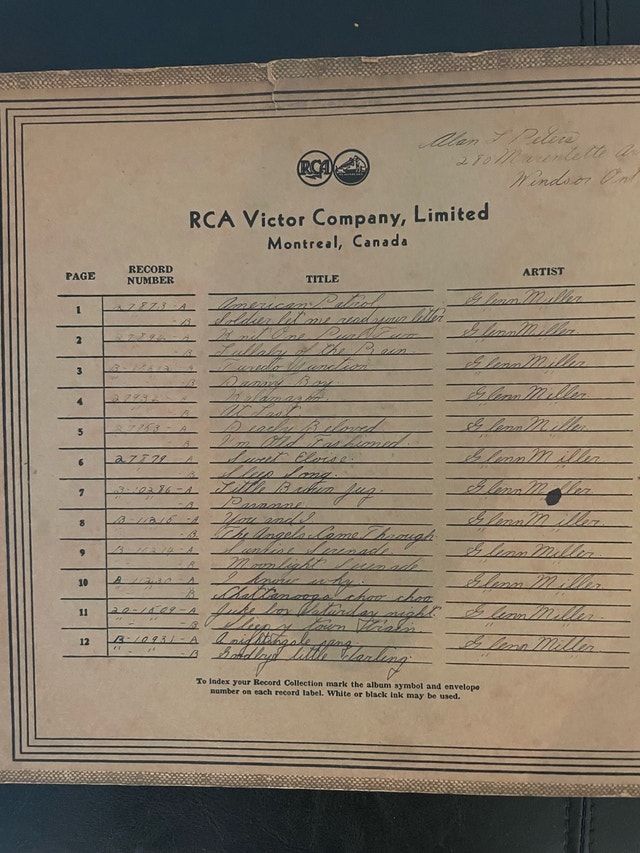 Alan L Peters
280 Marentette Av
Windsor Ont
RCA
RCA Victor Company, Limited
Montreal, Canada
PAGE RECORD NUMBER TITLE ARTIST
1 27873-A American Patrol Glenn Miller
-B Soldier let me read your letter
2 -A Glenn Miller
-B Lullaby of the Rain
3 -A Tuxedo Junction Glenn Miller
-B Danny Boy
4 -A Kalamazoo Glenn Miller
-B At Last
5 -A Dearly Beloved Glenn Miller
-B I'm Old Fashioned
6 27879 A Sweet Eloise Glenn Miller
B Sleep Song
7 B-10286-A Little Brown Jug Glenn Miller
B
8 B-11215-A You and I Glenn Miller
-B The Angels Came Through
9 A Sunrise Serenade Glenn Miller
B Moonlight Serenade
10 B A I know why Glenn Miller
B Chattanooga choo choo
11 20-1509-A Juke box Saturday night Glenn Miller
-B Sleepy town train
12 B-10931-A A nightingale sang Glenn Miller
" " -B Goodbye little darling
To index your Record Collection mark the album symbol and envelope
number on each record label. White or black ink may be used.